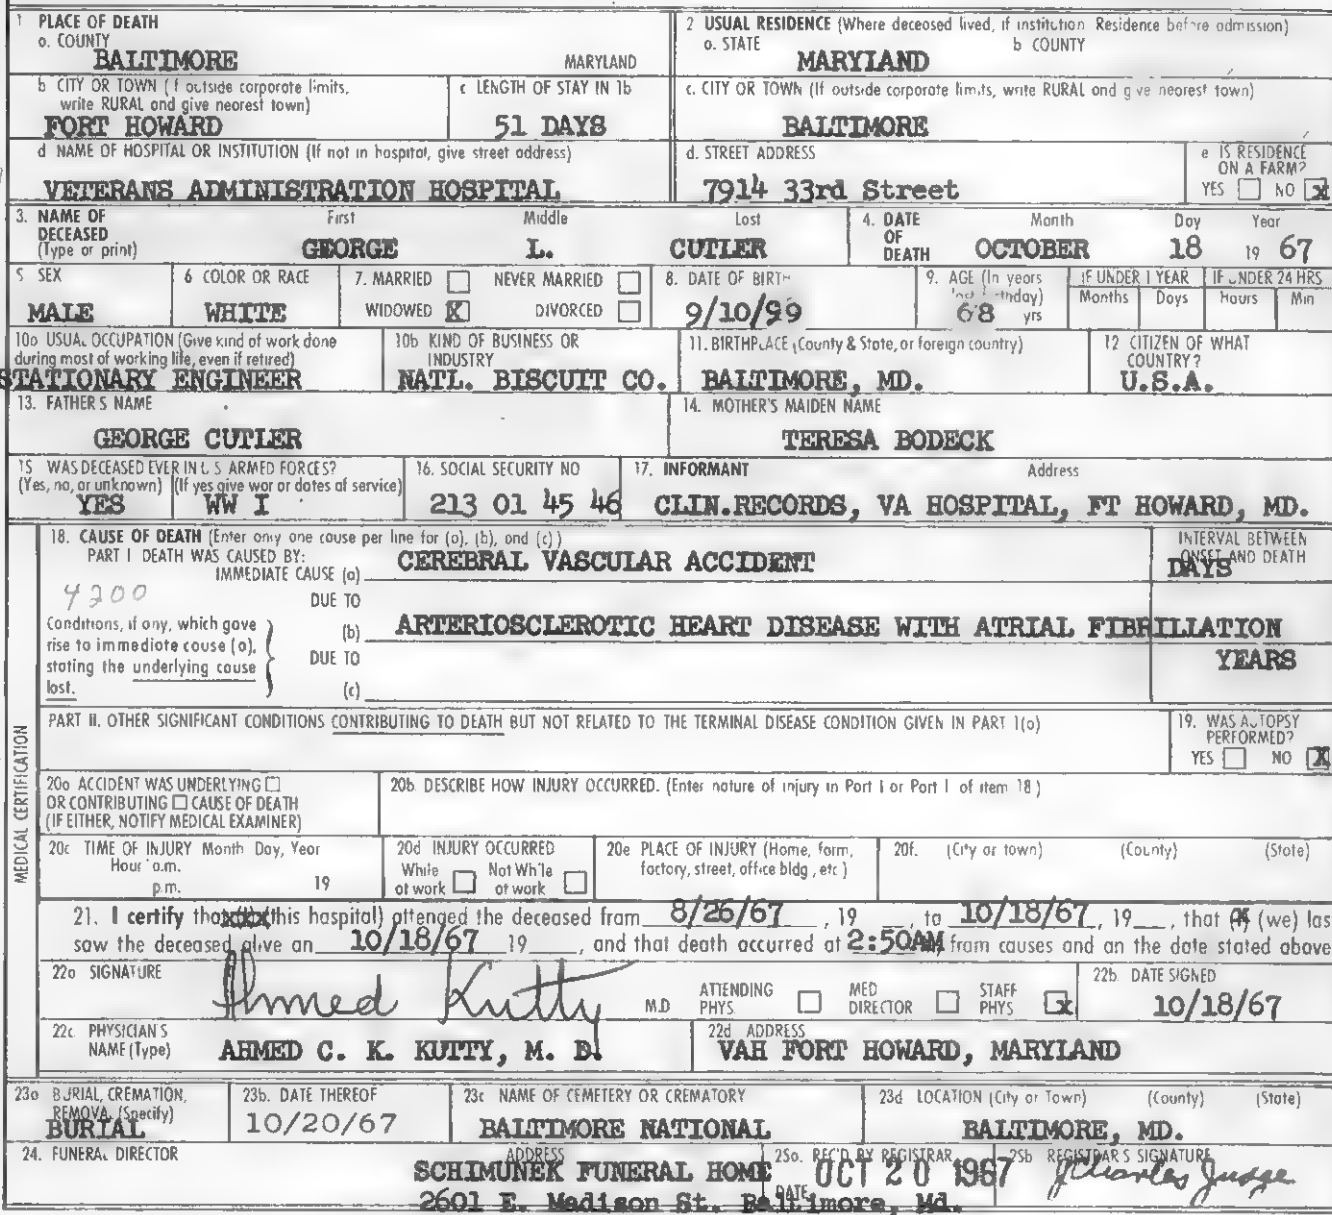 1 PLACE OF DEATH
a. COUNTY
BALTIMORE MARYLAND
2 USUAL RESIDENCE (Where deceased lived, if institution Residence before admission)
a. STATE b COUNTY
MARYLAND
b CITY OR TOWN (If outside corporate limits, write RURAL and give nearest town)
FORT HOWARD
c LENGTH OF STAY IN 1b
51 DAYS
c. CITY OR TOWN (If outside corporate limits, write RURAL and give nearest town)
BALTIMORE
d NAME OF HOSPITAL OR INSTITUTION (If not in hospital, give street address)
VETERANS ADMINISTRATION HOSPITAL
d. STREET ADDRESS
7914 33rd Street
e IS RESIDENCE ON A FARM?
YES NO X
3. NAME OF DECEASED (Type or print)
First Middle Last
GEORGE L. CUTLER
4. DATE OF DEATH
Month Day Year
OCTOBER 18 19 67
5 SEX
MALE
6 COLOR OR RACE
WHITE
7. MARRIED NEVER MARRIED
WIDOWED X DIVORCED
8. DATE OF BIRTH
9/10/99
9. AGE (In years last birthday)
68 yrs
IF UNDER 1 YEAR
Months Days
IF UNDER 24 HRS
Hours Min
10a USUAL OCCUPATION (Give kind of work done during most of working life, even if retired)
STATIONARY ENGINEER
10b KIND OF BUSINESS OR INDUSTRY
NATL. BISCUIT CO.
11. BIRTHPLACE (County & State, or foreign country)
BALTIMORE, MD.
12 CITIZEN OF WHAT COUNTRY?
U.S.A.
13. FATHER'S NAME
GEORGE CUTLER
14. MOTHER'S MAIDEN NAME
TERESA BODECK
15 WAS DECEASED EVER IN U S ARMED FORCES?
(Yes, no, or unknown) (If yes give war or dates of service)
YES WW I
16. SOCIAL SECURITY NO
213 01 45 46
17. INFORMANT Address
CLIN.RECORDS, VA HOSPITAL, FT HOWARD, MD.
MEDICAL CERTIFICATION
18. CAUSE OF DEATH (Enter only one cause per line for (a), (b), and (c))
PART I DEATH WAS CAUSED BY:
IMMEDIATE CAUSE (a) CEREBRAL VASCULAR ACCIDENT
INTERVAL BETWEEN ONSET AND DEATH
DAYS
4200
DUE TO
Conditions, if any, which gave rise to immediate cause (a), stating the underlying cause last.
(b) ARTERIOSCLEROTIC HEART DISEASE WITH ATRIAL FIBRILLATION
DUE TO YEARS
(c)
PART II. OTHER SIGNIFICANT CONDITIONS CONTRIBUTING TO DEATH BUT NOT RELATED TO THE TERMINAL DISEASE CONDITION GIVEN IN PART I(a)
19. WAS AUTOPSY PERFORMED?
YES NO X
20a ACCIDENT WAS UNDERLYING
OR CONTRIBUTING CAUSE OF DEATH
(IF EITHER, NOTIFY MEDICAL EXAMINER)
20b. DESCRIBE HOW INJURY OCCURRED. (Enter nature of injury in Part I or Part I of item 18)
20c TIME OF INJURY Month Day, Year
Hour a.m.
p.m. 19
20d INJURY OCCURRED
While at work Not While at work
20e PLACE OF INJURY (Home, farm, factory, street, office bldg, etc)
20f. (City or town) (County) (State)
21. I certify that (this hospital) attended the deceased from 8/26/67, 19 , to 10/18/67, 19 , that (we) las
saw the deceased alive on 10/18/67 19 , and that death occurred at 2:50AM from causes and on the date stated above
22a SIGNATURE
Ahmed Kutty M.D
ATTENDING PHYS. MED DIRECTOR STAFF PHYS X
22b. DATE SIGNED
10/18/67
22c. PHYSICIAN'S NAME (Type)
AHMED C. K. KUTTY, M. D.
22d ADDRESS
VAH FORT HOWARD, MARYLAND
23a BURIAL, CREMATION, REMOVAL (Specify)
BURIAL
23b. DATE THEREOF
10/20/67
23c NAME OF CEMETERY OR CREMATORY
BALTIMORE NATIONAL
23d LOCATION (City or Town) (County) (State)
BALTIMORE, MD.
24. FUNERAL DIRECTOR ADDRESS
SCHIMUNEK FUNERAL HOME
2601 E. Madison St. Baltimore, Md.
25a. REC'D BY REGISTRAR
DATE OCT 20 1967
25b REGISTRAR'S SIGNATURE
J Charles Judge